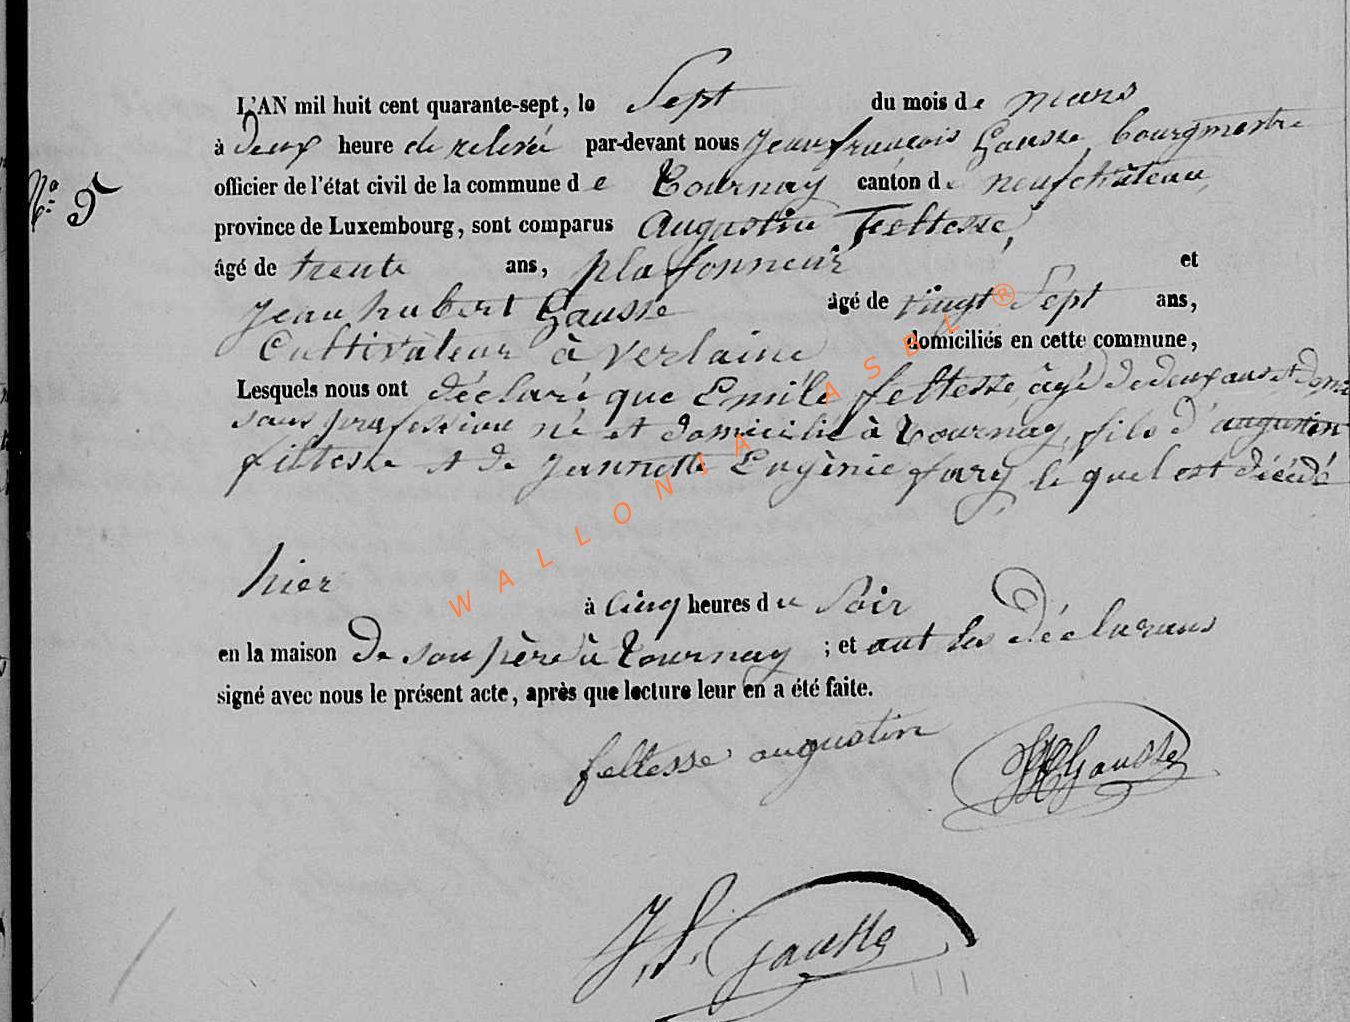 L'AN mil huit cent quarante-sept, le Sept du mois de mars
à deux heure de relevé par-devant nous Jean françois Gausse bourgmestre
N° 9
officier de l'état civil de la commune de Tournay canton de neufchâteau,
province de Luxembourg, sont comparus Augustin Feltesse,
âgé de trente ans, plafonneur et
Jean hubert Gausse âgé de vingt Sept ans,
Cultivateur à verlaine domiciliés en cette commune,
Lesquels nous ont déclaré que Emile feltesse, âgé de deux ans et demi
sans profession né et domicilié à Tournay, fils d'augustin
feltesse et de Jannette Eugènie fary le quel est décédé
hier
à cinq heures du Soir
en la maison de son père à Tournay ; et ont les déclarans
signé avec nous le présent acte, après que lecture leur en a été faite.
feltesse augustin
JHGausse
J. f. Gausse
WALLONIA ASBL ®